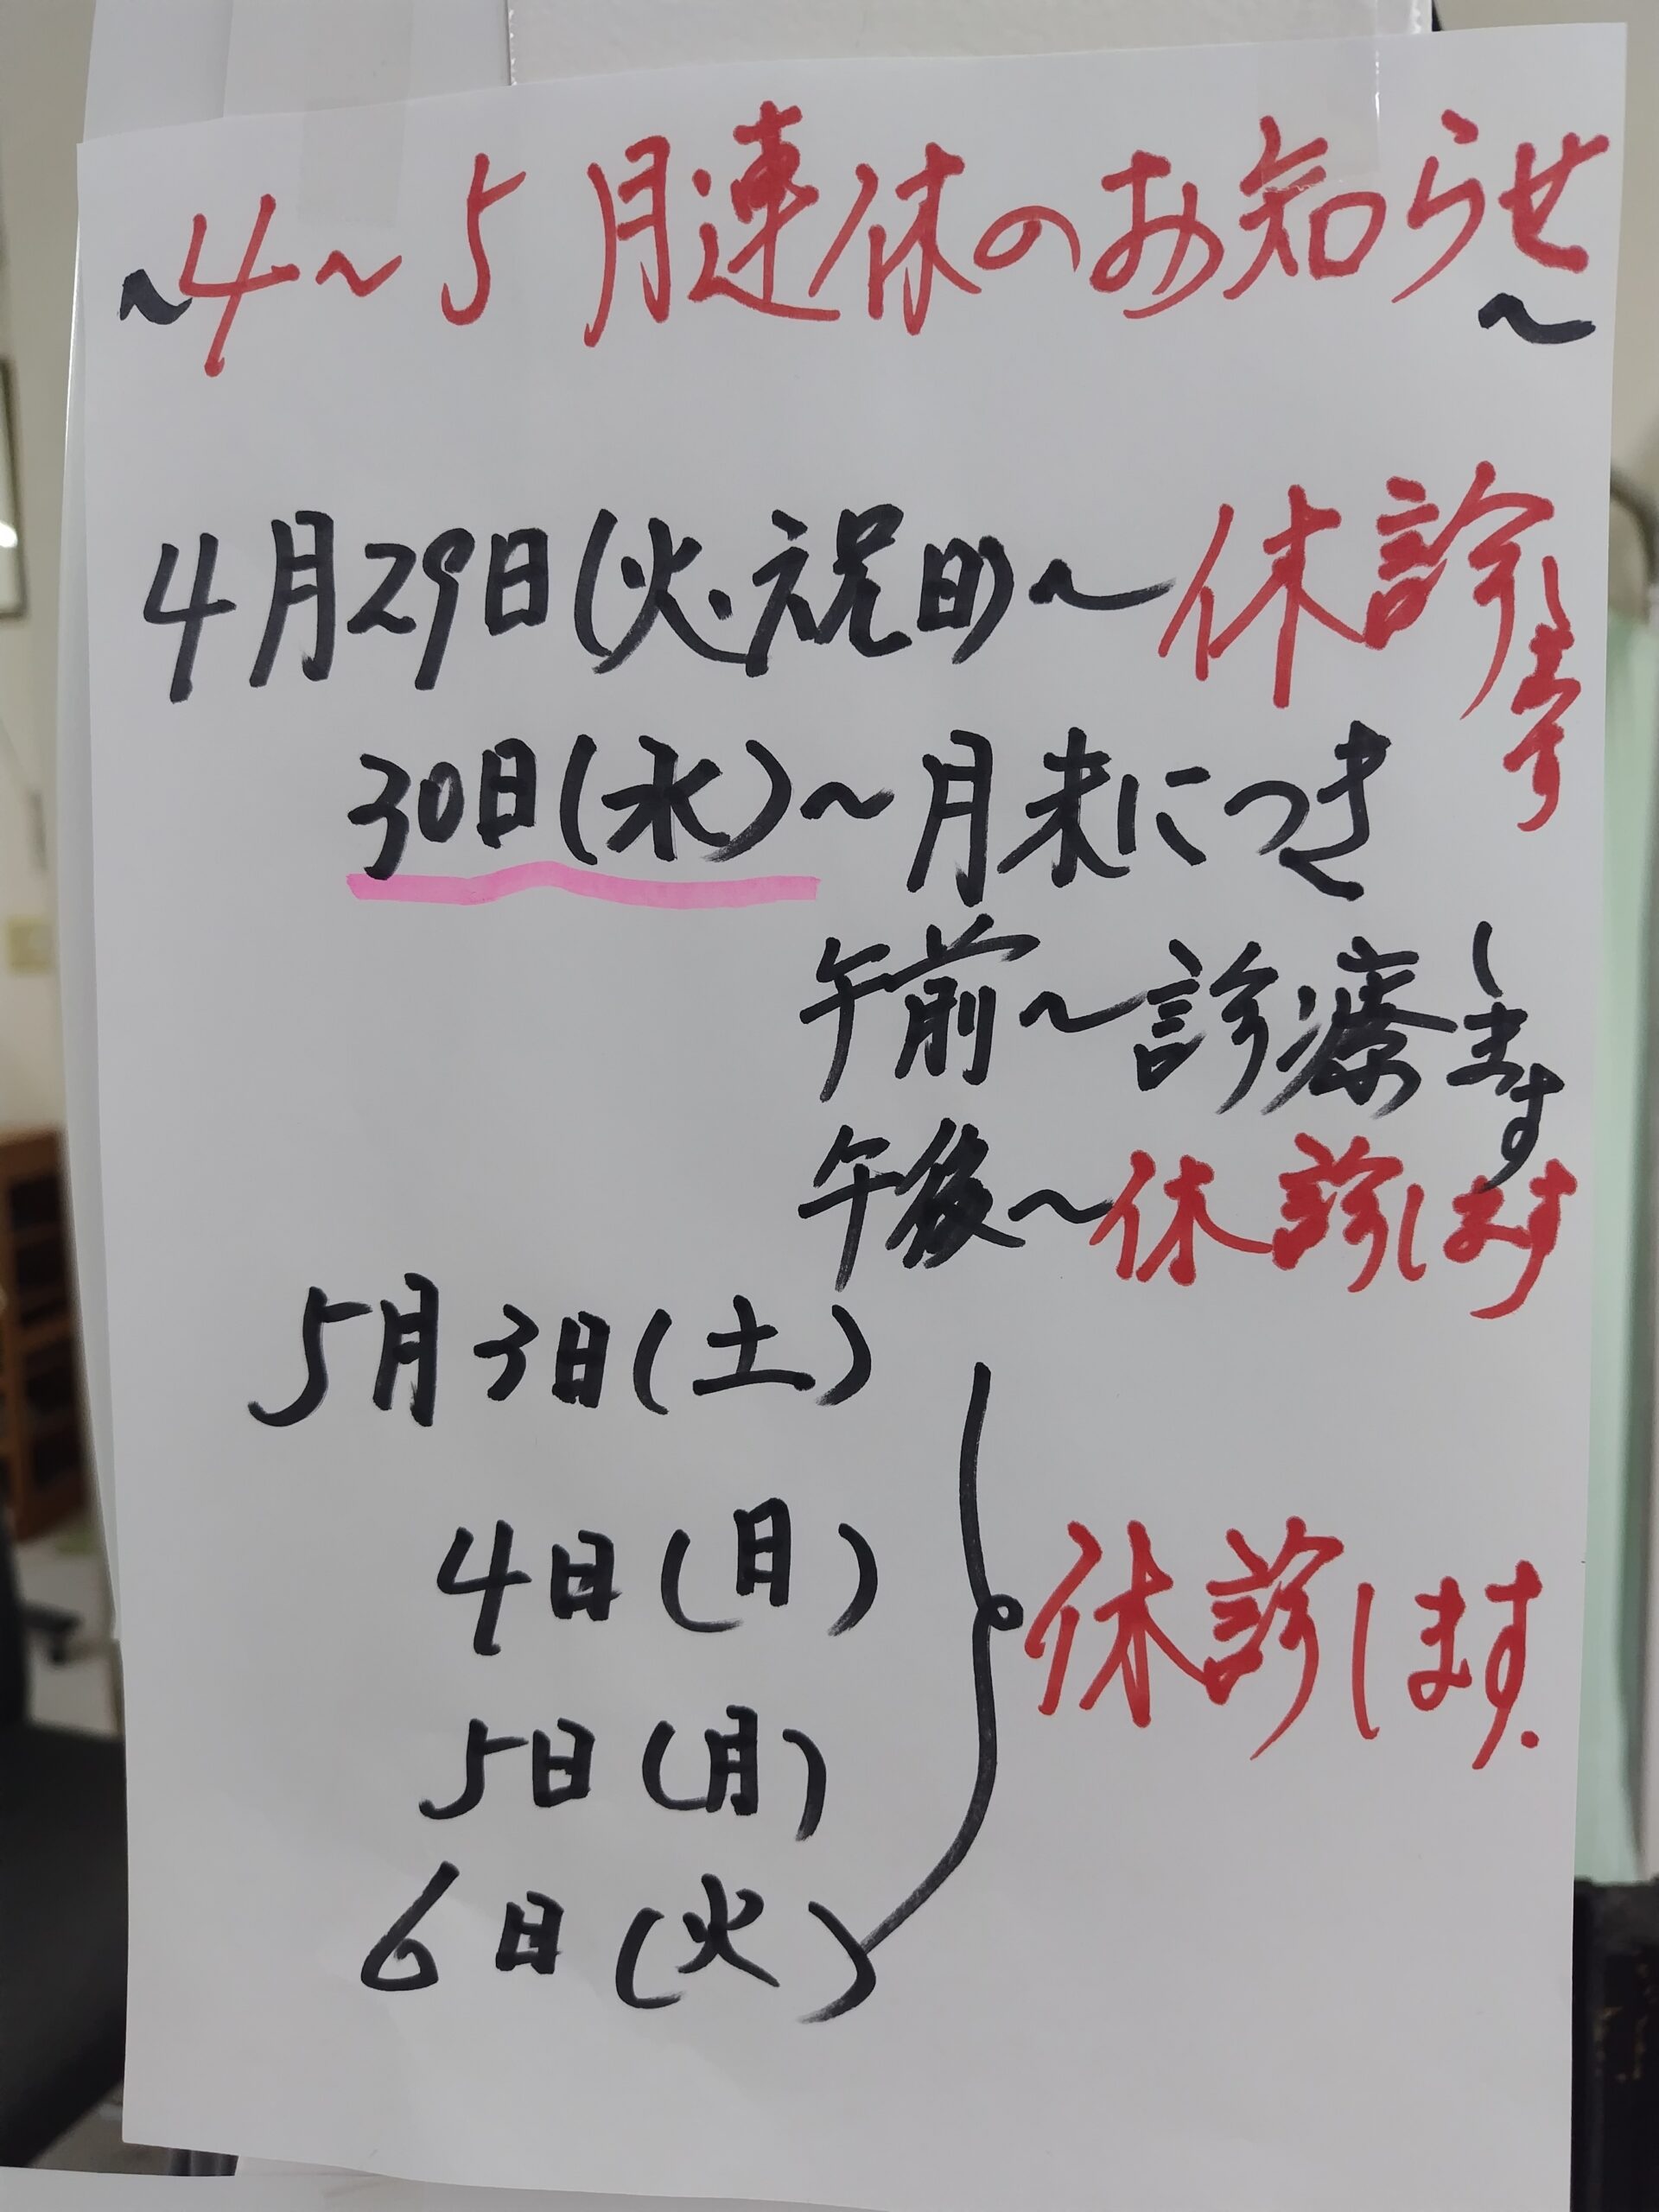 ~4~5月連休のお知らせ~
4月29日(火・祝日)~休診します
30日(水)~月末につき
午前~診療します
午後~休診します
5月3日(土)
4日(日)
5日(月)
6日(火)
休診します.